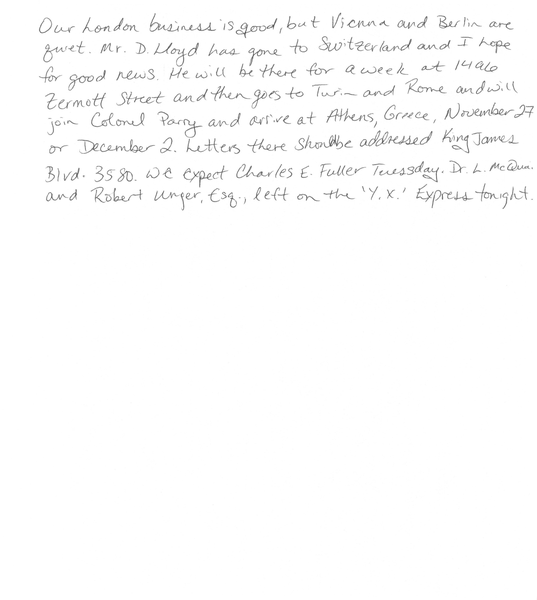 Our London business is good, but Vienna and Berlin are
quiet. Mr. D. Lloyd has gone to Switzerland and I hope
for good news. He will be there for a week at 1496
Zermott Street and then goes to Turin and Rome and will
join Colonel Parry and arrive at Athens, Greece, November 27
or December 2. Letters there should be addressed King James
Blvd. 3580. We expect Charles E. Fuller Tuesday. Dr. L. McQun.
and Robert Unger, Esq., left on the 'Y.X.' Express tonight.